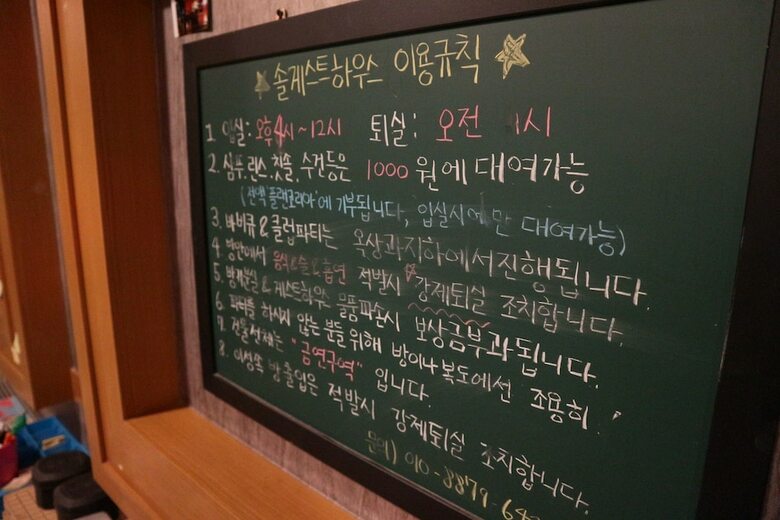 ☆ 솔게스트하우스 이용규칙 ☆
1. 입실: 오후4시~12시 퇴실: 오전 1시
2. 샴푸, 린스, 칫솔, 수건등은 1000원에 대여가능
(전액 '플랜코리아'에 기부됩니다, 입실시에만 대여가능)
3. 바비큐&클럽파티는 옥상과지하에서진행됩니다.
4. 방안에서 음식&술&흡연 적발시 강제퇴실 조치합니다.
5. 방키분실 & 게스트하우스 물품파손시 보상금부과됩니다.
6. 파티를 하시지 않는 분들 위해 방이나 복도에선 조용히!
7. 건물전체는 "금연구역" 입니다.
8. 이성쪽 방출입은 적발시 강제퇴실 조치합니다.
문의) 010-8879-64